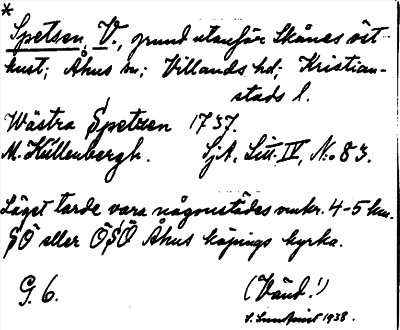 *
Spetsen, V., grund utanför Skånes öst-
kust; Åhus sn; Villands hd; Kristian-
stads l.
Wästra Spetzen 1737.
M. Küllenbergh. SjA, Litt. IV, No 83.
Läget torde vara någonstädes omkr. 4-5 km.
SÖ eller ÖSÖ Åhus köpings kyrka.
G. 6. (Vänd!)
S. Sundqvist 1938.